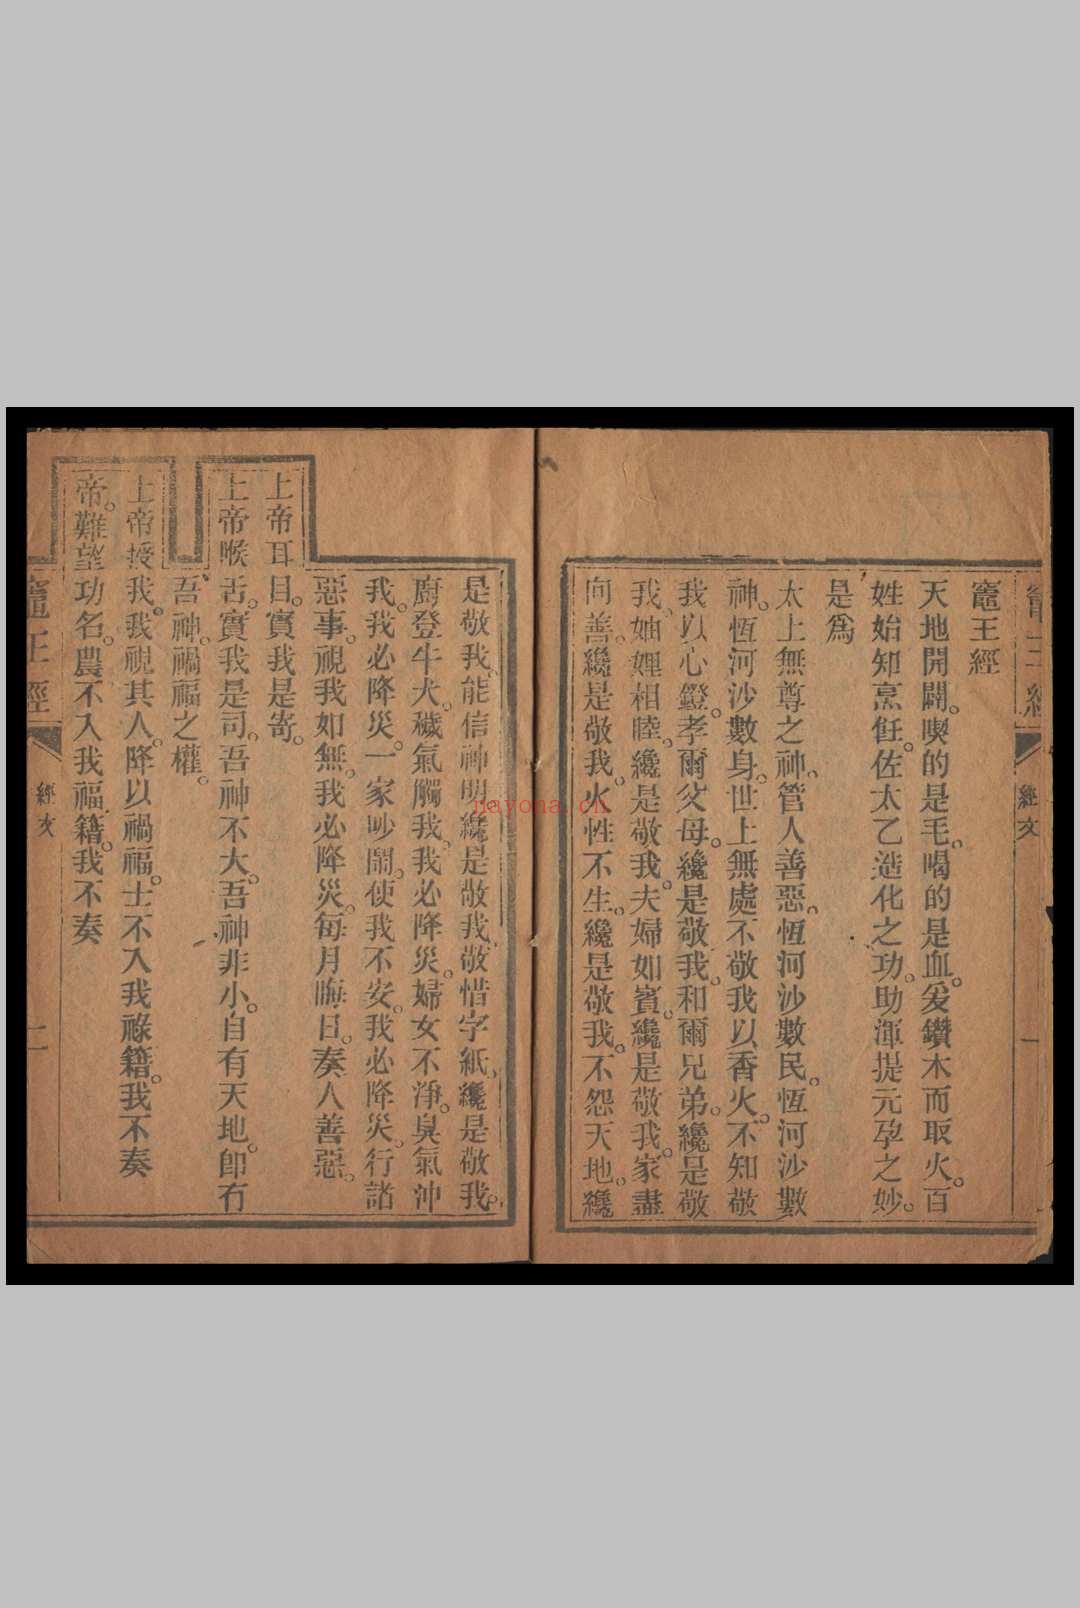 竈王經
經文
一
竈王經
天地開闢。喫的是毛。喝的是血。爰鑽木而取火。百
姓始知烹飪。佐太乙造化之功。助渾提元孕之妙。
是爲
太上無尊之神。管人善惡。恆河沙數民。恆河沙數
神。恆河沙數身。世上無處不敬我以香火。不知敬
我以心鐙。孝爾父母。纔是敬我。和爾兄弟。纔是敬
我。妯娌相睦。纔是敬我。夫婦如賓。纔是敬我。家盡
向善。纔是敬我。火性不生。纔是敬我。不怨天地。纔
是敬我。能信神明。纔是敬我。敬惜字紙。纔是敬我。
廚登牛犬。穢氣觸我。我必降災。婦女不淨。臭氣沖
我。我必降災。一家吵鬧。使我不安。我必降災。行諸
惡事。視我如無。我必降災。每月晦日。奏人善惡。
上帝耳目。實我是寄。
上帝喉舌。實我是司。吾神不大。吾神非小。自有天地。卽有
吾神。禍福之權。
上帝授我。我視其人。降以禍福。士不入我祿籍。我不奏
帝。難望功名。農不入我福籍。我不奏
竈王經
經文
二
nayona.cn